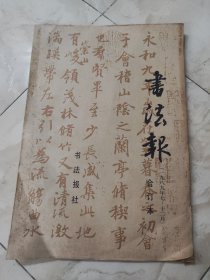 書法報
合訂本
永和九年
暮春之初會
于會稽山陰之蘭亭脩稧事
也群賢畢至少長咸集此地
有崇山峻領茂林脩竹又有清流激
湍暎帶左右引以為流觴曲水
书法报社